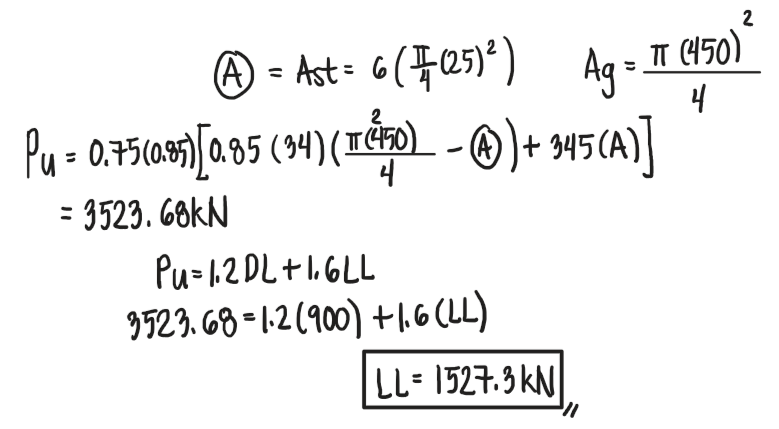 Ⓐ = Ast = 6(π/4 (25)²)    Ag = π(450)²/4
Pu = 0.75(0.85)[0.85(34)(π(450)²/4 − Ⓐ) + 345(A)]
= 3523.68kN
Pu = 1.2DL + 1.6LL
3523.68 = 1.2(900) + 1.6(LL)
LL = 1527.3kN //